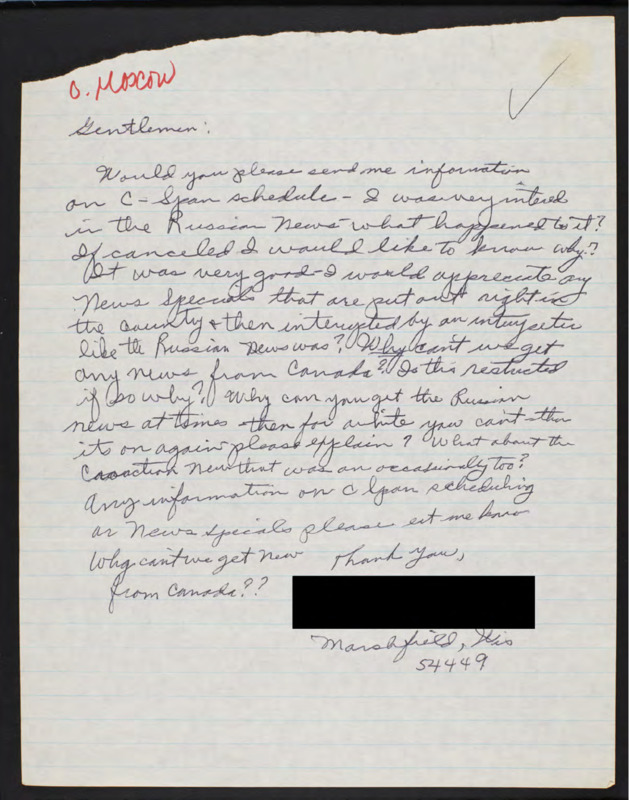 O. Moscow
Gentlemen:
Would you please send me information
on C-Span schedule - I was very intered
in the Russian News - what happened to it?
If canceled I would like to know why?
It was very good - I would appreciate any
News Specials that are put out right in
the county & then interupted by an
like the Russian News was? Why can't we get
any news from Canada? Is this restricted
if so why? Why can you get the Russian
news at times - then for a white you can't - then
its on again please explain? What about the
News that was on occasionally too?
Any information on C Span scheduling
or News specials please let me know
Why can't we get New
from Canada??
Thank you,
Marshfield, Wis
54449